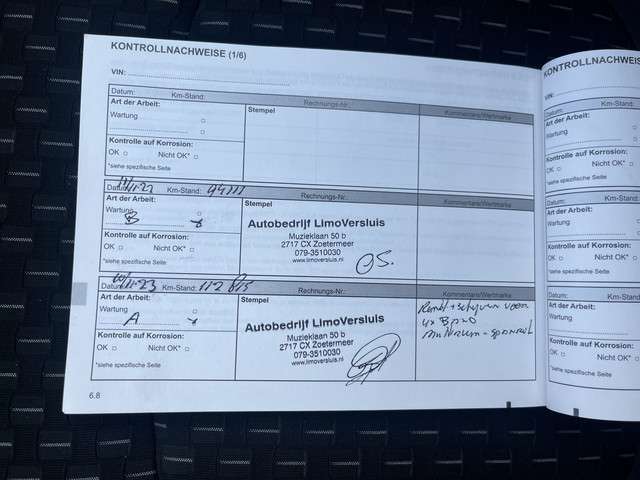 KONTROLLNACHWEISE (1/6)
VIN:
Datum: Km-Stand: Rechnungs-Nr.:
Art der Arbeit: Stempel Kommentare/Wertmarke
Wartung
Kontrolle auf Korrosion:
OK Nicht OK*
*siehe spezifische Seite
Datum: Km-Stand: Rechnungs-Nr.:
Art der Arbeit: Stempel Kommentare/Wertmarke
Wartung
B
Kontrolle auf Korrosion:
OK Nicht OK*
*siehe spezifische Seite
Autobedrijf LimoVersluis
Muzieklaan 50 b
2717 CX Zoetermeer
079-3510030
www.limoversluis.nl
Datum: Km-Stand: 112 815 Rechnungs-Nr.:
Art der Arbeit: Stempel Kommentare/Wertmarke
Wartung
A
Kontrolle auf Korrosion:
OK Nicht OK*
*siehe spezifische Seite
Autobedrijf LimoVersluis
Muzieklaan 50 b
2717 CX Zoetermeer
079-3510030
www.limoversluis.nl
6.8
KONTROLLNACHWEISE
VIN:
Datum: Km-Stand:
Art der Arbeit:
Wartung
Kontrolle auf Korrosion:
OK Nicht OK*
*siehe spezifische Seite
Datum: Km-Stand:
Art der Arbeit:
Wartung
Kontrolle auf Korrosion:
OK Nicht OK*
*siehe spezifische Seite
Datum: Km-Stand:
Art der Arbeit:
Wartung
Kontrolle auf Korrosion:
OK Nicht OK*
*siehe spezifische Seite